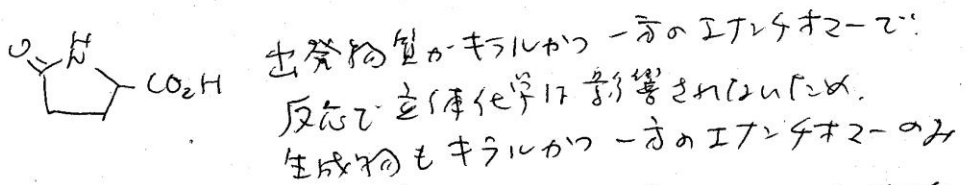 O
NH
CO₂H
出発物質がキラルかつ一方のエナンチオマーで
反応で立体化学は影響されないため、
生成物もキラルかつ一方のエナンチオマーのみ